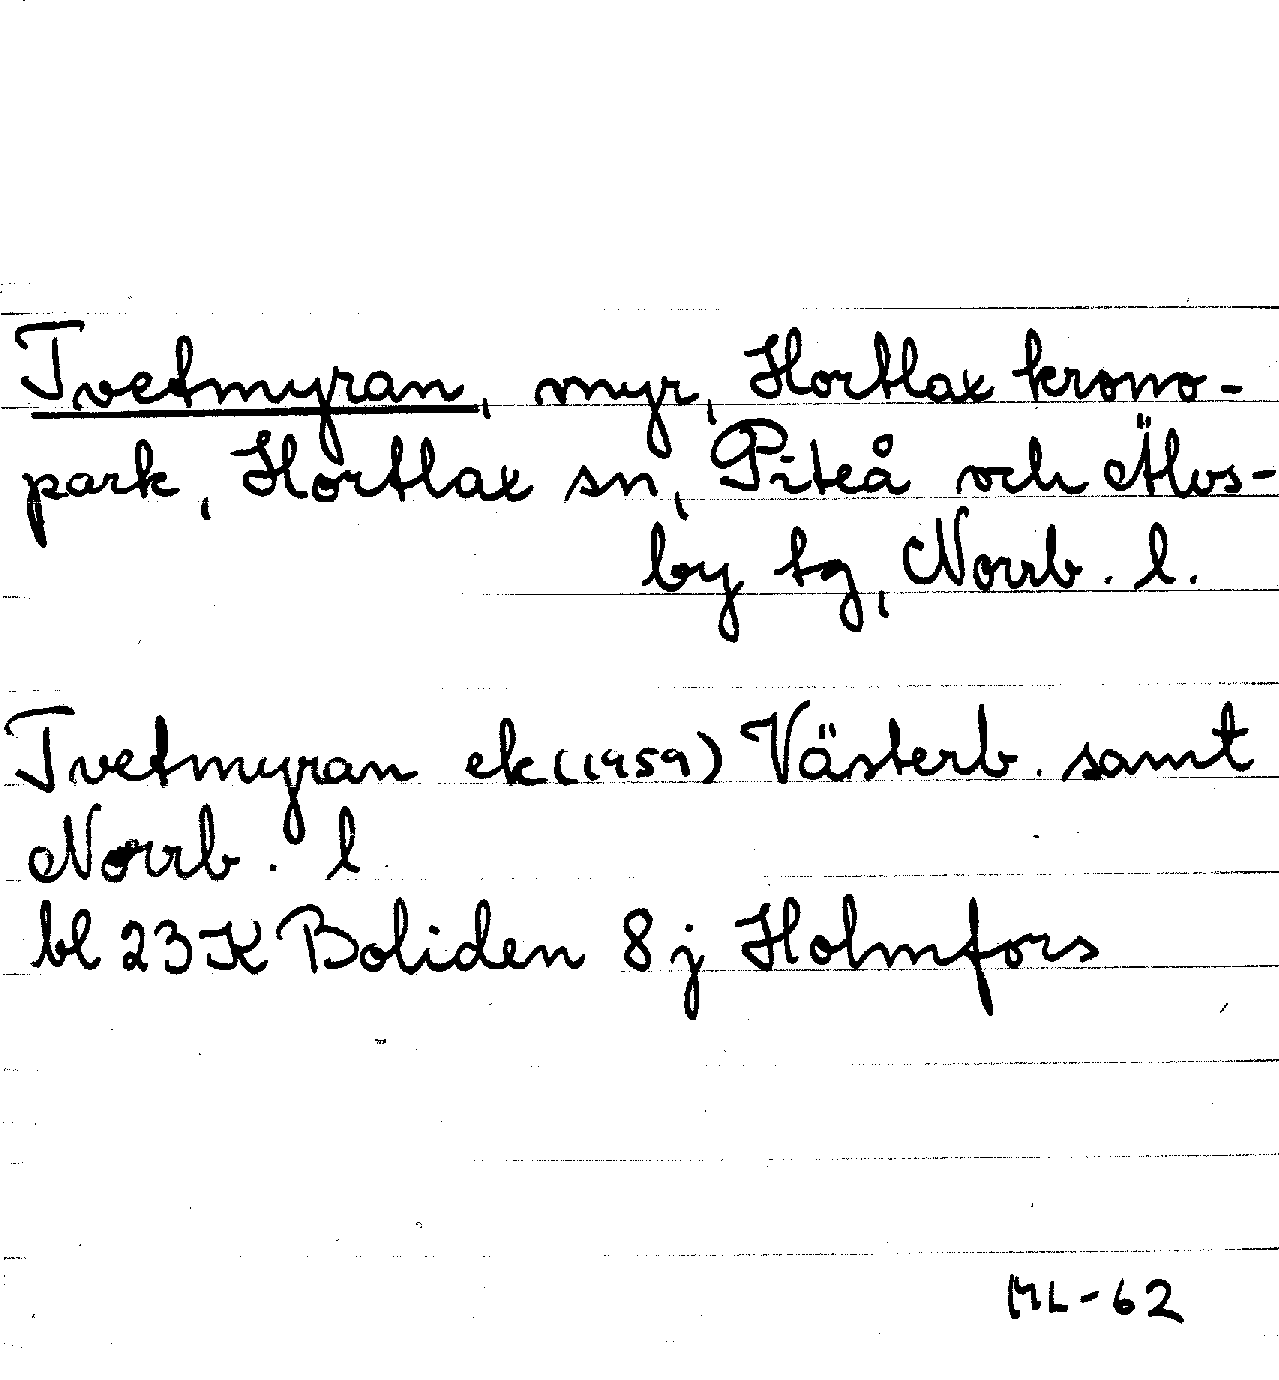 Tvetmyran, myr, Hortlax krono-
park, Hortlax sn, Piteå och Älvs-
by tg, Norrb. l.
Tvetmyran ek (1959) Västerb. samt
Norrb. l
bl 23K Boliden 8j Holmfors
ML-62